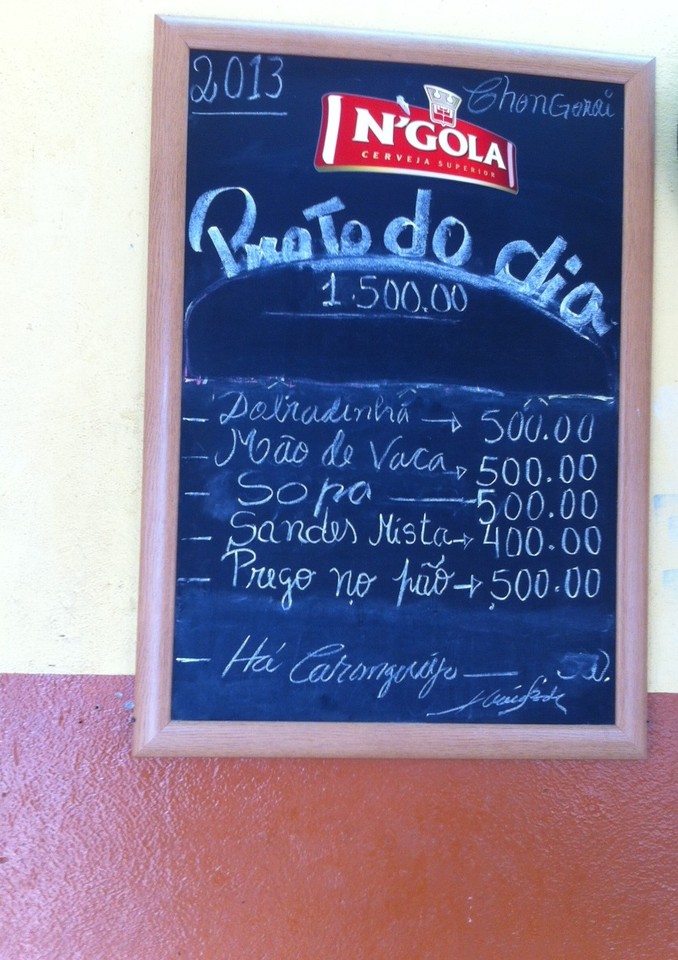 2013
ChonGorai
N'GOLA
CERVEJA SUPERIOR
Prato do dia
1.500.00
- Dobradinha → 500.00
- Mão de Vaca → 500.00
- Sopa — 500.00
- Sandes Mista → 400.00
- Prego no pão → 500.00
- Há Caranguéijo —